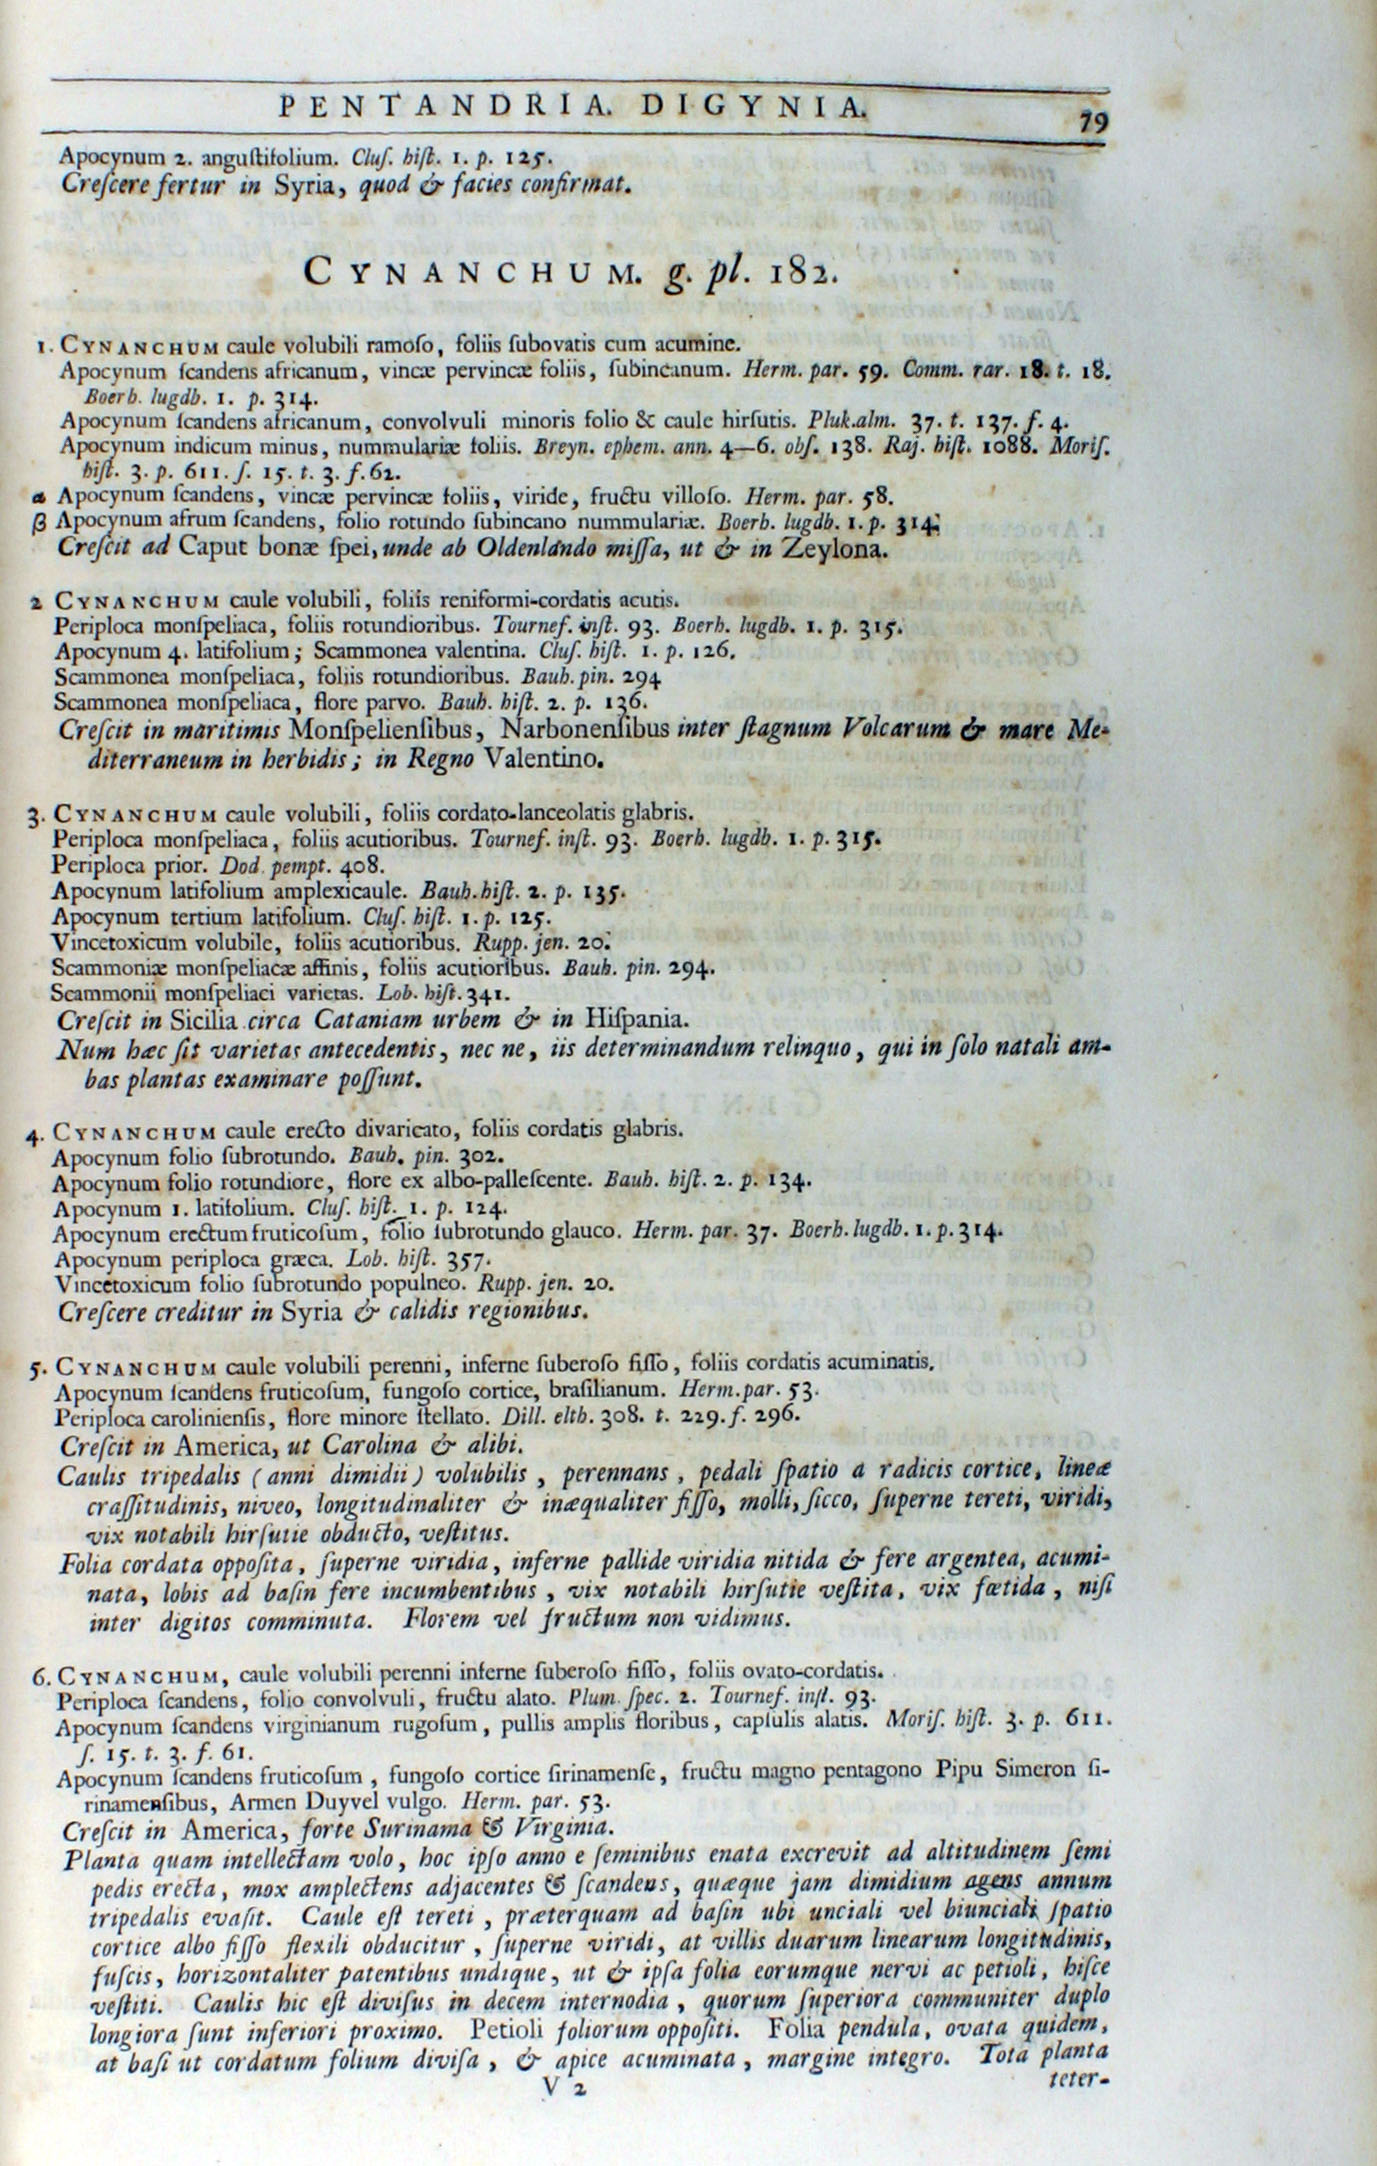 PENTANDRIA. DIGYNIA. 79
Apocynum 2. anguſtifolium. Cluſ. hiſt. 1. p. 125.
Creſcere fertur in Syria, quod & facies confirmat.
CYNANCHUM. g. pl. 182.
1. CYNANCHUM caule volubili ramoſo, foliis ſubovatis cum acumine.
Apocynum ſcandens africanum, vincæ pervincæ foliis, ſubincanum. Herm. par. 59. Comm. rar. 18. t. 18.
Boerh. lugdb. 1. p. 314.
Apocynum ſcandens africanum, convolvuli minoris folio & caule hirſutis. Pluk. alm. 37. t. 137. f. 4.
Apocynum indicum minus, nummulariæ foliis. Breyn. ephem. ann. 4—6. obſ. 138. Raj. hiſt. 1088. Moriſ.
hiſt. 3. p. 611. ſ. 15. t. 3. f. 62.
α Apocynum ſcandens, vincæ pervincæ foliis, viride, fructu villoſo. Herm. par. 58.
β Apocynum afrum ſcandens, folio rotundo ſubincano nummulariæ. Boerh. lugdb. 1. p. 314.
Creſcit ad Caput bonæ ſpei, unde ab Oldenlando miſſa, ut & in Zeylona.
2 CYNANCHUM caule volubili, foliis reniformi-cordatis acutis.
Periploca monſpeliaca, foliis rotundioribus. Tournef. inſt. 93. Boerh. lugdb. 1. p. 315.
Apocynum 4. latifolium; Scammonea valentina. Cluſ. hiſt. 1. p. 126.
Scammonea monſpeliaca, foliis rotundioribus. Bauh. pin. 294
Scammonea monſpeliaca, flore parvo. Bauh. hiſt. 2. p. 136.
Creſcit in maritimis Monſpelienſibus, Narbonenſibus inter ſtagnum Volcarum & mare Me-
diterraneum in herbidis; in Regno Valentino.
3. CYNANCHUM caule volubili, foliis cordato-lanceolatis glabris.
Periploca monſpeliaca, foliis acutioribus. Tournef. inſt. 93. Boerh. lugdb. 1. p. 315.
Periploca prior. Dod. pempt. 408.
Apocynum latifolium amplexicaule. Bauh. hiſt. 2. p. 135.
Apocynum tertium latifolium. Cluſ. hiſt. 1. p. 125.
Vincetoxicum volubile, foliis acutioribus. Rupp. jen. 20.
Scammoniæ monſpeliacæ affinis, foliis acutioribus. Bauh. pin. 294.
Scammonii monſpeliaci varietas. Lob. hiſt. 341.
Creſcit in Sicilia circa Cataniam urbem & in Hiſpania.
Num hæc ſit varietas antecedentis, nec ne, iis determinandum relinquo, qui in ſolo natali am-
bas plantas examinare poſſunt.
4. CYNANCHUM caule erecto divaricato, foliis cordatis glabris.
Apocynum folio ſubrotundo. Bauh. pin. 302.
Apocynum folio rotundiore, flore ex albo-palleſcente. Bauh. hiſt. 2. p. 134.
Apocynum 1. latifolium. Cluſ. hiſt. 1. p. 124.
Apocynum erectum fruticoſum, folio ſubrotundo glauco. Herm. par. 37. Boerh. lugdb. 1. p. 314.
Apocynum periploca græca. Lob. hiſt. 357.
Vincetoxicum folio ſubrotundo populneo. Rupp. jen. 20.
Creſcere creditur in Syria & calidis regionibus.
5. CYNANCHUM caule volubili perenni, inferne ſuberoſo fiſſo, foliis cordatis acuminatis.
Apocynum ſcandens fruticoſum, fungoſo cortice, braſilianum. Herm. par. 53.
Periploca carolinienſis, flore minore ſtellato. Dill. elth. 308. t. 229. f. 296.
Creſcit in America, ut Carolina & alibi.
Caulis tripedalis (anni dimidii) volubilis, perennans, pedali ſpatio a radicis cortice, lineæ
craſſitudinis, niveo, longitudinaliter & inæqualiter fiſſo, molli, ſicco, ſuperne tereti, viridi,
vix notabili hirſutie obducto, veſtitus.
Folia cordata oppoſita, ſuperne viridia, inferne pallide viridia nitida & fere argentea, acumi-
nata, lobis ad baſin fere incumbentibus, vix notabili hirſutie veſtita, vix fœtida, niſi
inter digitos comminuta. Florem vel fructum non vidimus.
6. CYNANCHUM, caule volubili perenni inferne ſuberoſo fiſſo, foliis ovato-cordatis.
Periploca ſcandens, folio convolvuli, fructu alato. Plum. ſpec. 2. Tournef. inſt. 93.
Apocynum ſcandens virginianum rugoſum, pullis amplis floribus, capſulis alatis. Moriſ. hiſt. 3. p. 611.
ſ. 15. t. 3. f. 61.
Apocynum ſcandens fruticoſum, fungoſo cortice ſirinamenſe, fructu magno pentagono Pipu Simeron ſi-
rinamenſibus, Armen Duyvel vulgo. Herm. par. 53.
Creſcit in America, forte Surinama & Virginia.
Planta quam intellectam volo, hoc ipſo anno e ſeminibus enata excrevit ad altitudinem ſemi
pedis erecta, mox amplectens adjacentes & ſcandens, quæque jam dimidium agens annum
tripedalis evaſit. Caule eſt tereti, præterquam ad baſin ubi unciali vel biunciali ſpatio
cortice albo fiſſo flexili obducitur, ſuperne viridi, at villis duarum linearum longitudinis,
fuſcis, horizontaliter patentibus undique, ut & ipſa folia eorumque nervi ac petioli, hiſce
veſtiti. Caulis hic eſt diviſus in decem internodia, quorum ſuperiora communiter duplo
longiora ſunt inferiori proximo. Petioli foliorum oppoſiti. Folia pendula, ovata quidem,
at baſi ut cordatum folium diviſa, & apice acuminata, margine integro. Tota planta
V 2 teter-